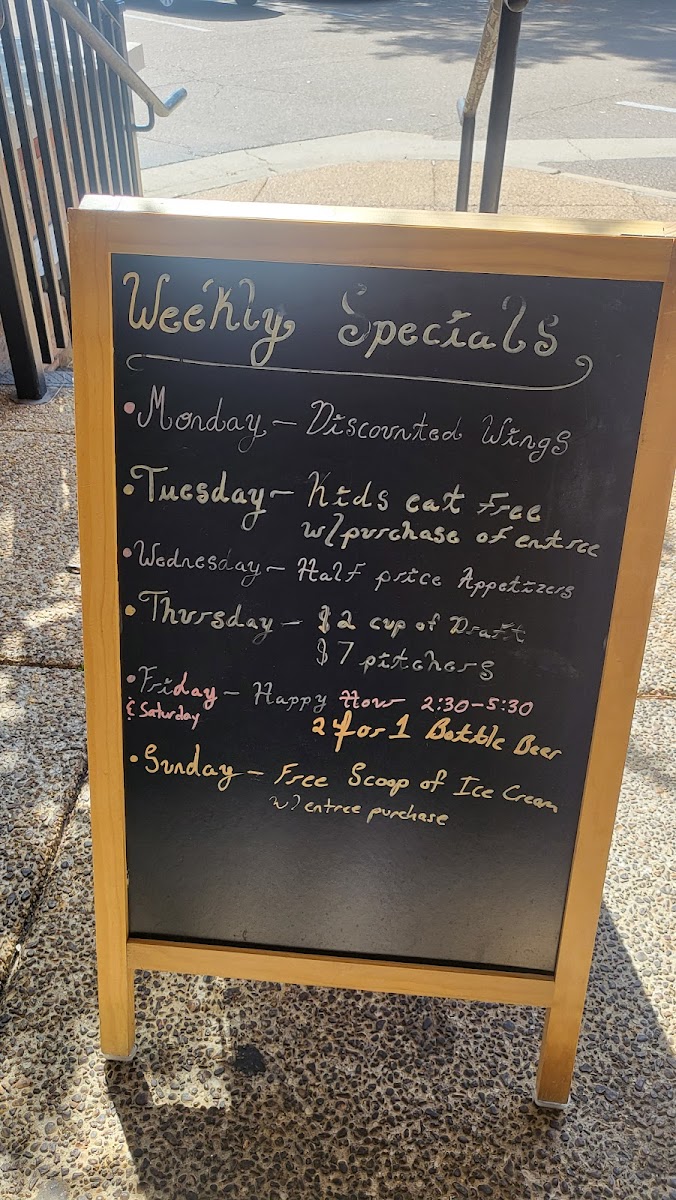 Weekly Specials
• Monday - Discounted Wings
• Tuesday - Kids eat Free
w/purchase of entree
• Wednesday - Half price Appetizers
• Thursday - $2 cup of Draft
$7 pitchers
• Friday - Happy Hour 2:30-5:30
& Saturday
2 for 1 Bottle Beer
• Sunday - Free Scoop of Ice Cream
w/ entree purchase